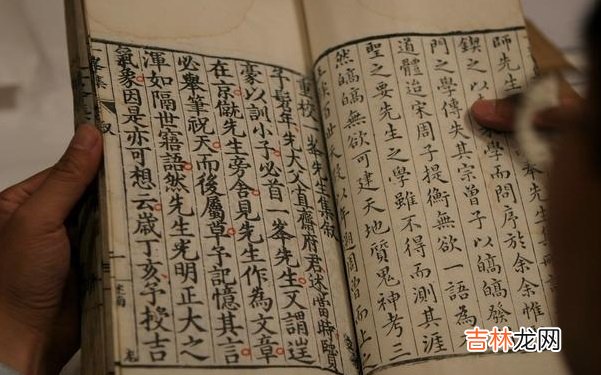 師先生
峯先生
鍥之以
學而問序於余余惟
門之學傳失其宗曾子以皜皜發
道體迨宋周子提衡無欲一語為
聖之要先生之學雖不得而測其涯
然皜皜無欲可建天地質鬼神考三
重校一峯先生集叙
予髫年先大父直齋府君述當時賢
豪以訓小子必首一峯先生又謂逆
在京僦先生旁舍見先生作為文章
必舉筆祝天而後屬草予記憶其言
渾如隔世寤語然先生光明正大之
氣象因是亦可想云歲丁亥予授吉
峯集 叙
吉林龙网